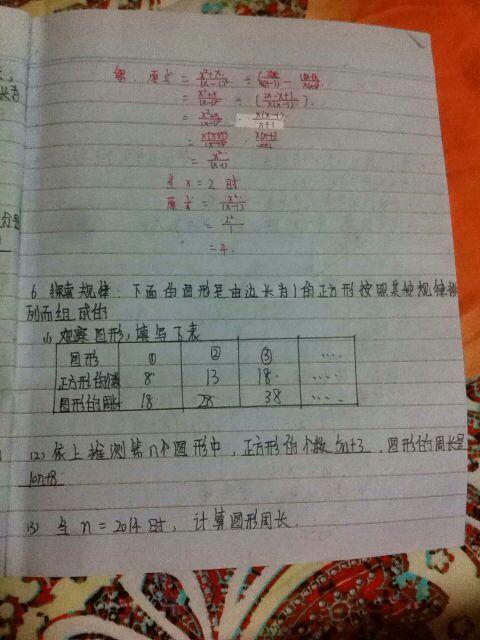 解：原式 = x²+x/(x-1)² ÷ (2x/x(x-1) - x-1/x(x-1))
= x²+x/(x-1)² ÷ (2x-x+1/x(x-1))
= x²+x/(x-1)² · x(x-1)/x+1
= x(x+1)/(x-1)² · x(x-1)/x+1
= x²/(x-1)
当 x = 2 时
原式 = x²/(x-1)
= 2²/1
= 4.
6 探索规律：下面的图形是由边长为1的正方形按照某种规律排
列而组成的
(1) 观察图形，填写下表
图形 ① ② ③ ……
正方形的个数 8 13 18 ……
图形的周长 18 28 38 ……
(2) 依上推测第n个图形中，正方形的个数 5n+3，图形的周长是
10n+8
(3) 当 n = 2014时，计算图形周长.